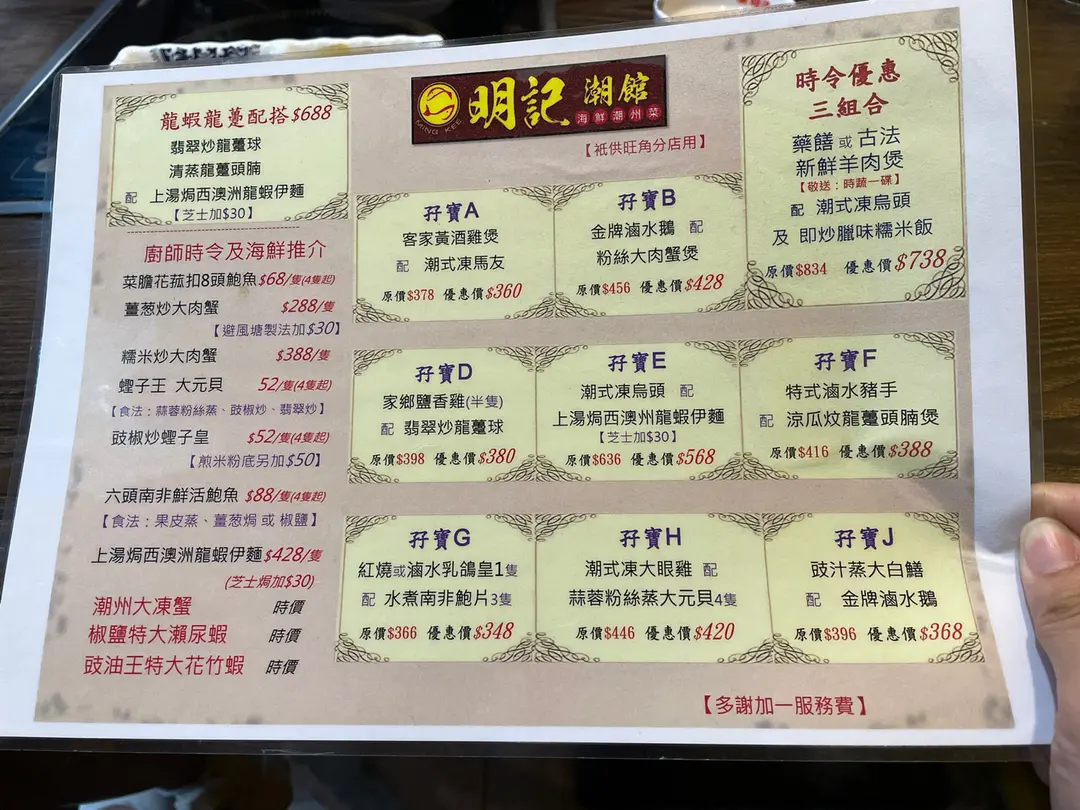 龍蝦龍躉配搭$688
翡翠炒龍躉球
清蒸龍躉頭腩
配 上湯焗西澳洲龍蝦伊麵
【芝士加$30】
廚師時令及海鮮推介
菜膽花菇扣8頭鮑魚$68/隻(4隻起)
薑葱炒大肉蟹 $288/隻
【避風塘製法加$30】
糯米炒大肉蟹 $388/隻
蟶子王 大元貝 52/隻(4隻起)
【食法：蒜蓉粉絲蒸、豉椒炒、翡翠炒】
豉椒炒蟶子皇 $52/隻(4隻起)
【煎米粉底另加$50】
六頭南非鮮活鮑魚 $88/隻(4隻起)
【食法：果皮蒸、薑葱焗 或 椒鹽】
上湯焗西澳洲龍蝦伊麵$428/隻
(芝士焗加$30)
潮州大凍蟹 時價
椒鹽特大瀨尿蝦 時價
豉油王特大花竹蝦 時價
MING KEE
明記 潮館
海鮮潮州菜
【衹供旺角分店用】
孖寶A
客家黃酒雞煲
配 潮式凍馬友
原價$378 優惠價$360
孖寶B
金牌滷水鵝 配
粉絲大肉蟹煲
原價$456 優惠價$428
時令優惠
三組合
藥饍 或 古法
新鮮羊肉煲
【敬送：時蔬一碟】
配 潮式凍烏頭
及 即炒臘味糯米飯
原價$834 優惠價$738
孖寶D
家鄉鹽香雞(半隻)
配 翡翠炒龍躉球
原價$398 優惠價$380
孖寶E
潮式凍烏頭 配
上湯焗西澳州龍蝦伊麵
【芝士加$30】
原價$636 優惠價$568
孖寶F
特式滷水豬手
配 涼瓜炆龍躉頭腩煲
原價$416 優惠價$388
孖寶G
紅燒或滷水乳鴿皇1隻
配 水煮南非鮑片3隻
原價$366 優惠價$348
孖寶H
潮式凍大眼雞 配
蒜蓉粉絲蒸大元貝4隻
原價$446 優惠價$420
孖寶J
豉汁蒸大白鱔
配 金牌滷水鵝
原價$396 優惠價$368
【多謝加一服務費】